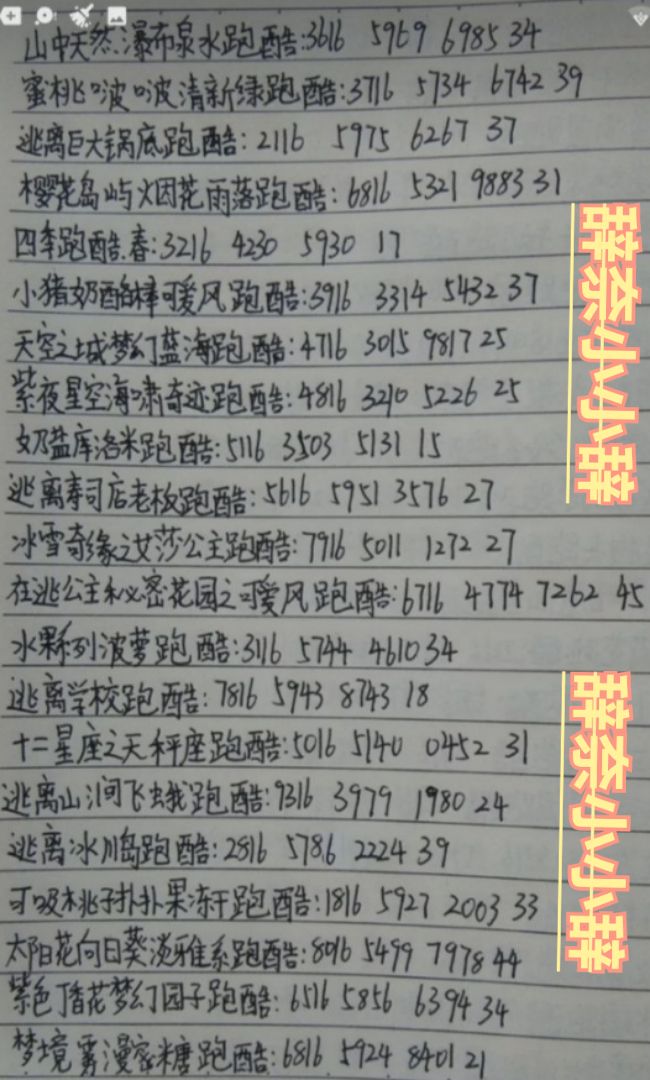 山中天然瀑布泉水跑酷:3616 5969 6985 34
蜜桃啵啵清新绿跑酷:3716 5734 6742 39
逃离巨大锅底跑酷:2116 5975 6267 37
樱花岛屿烟花雨落跑酷:6816 5321 9883 31
四季跑酷.春:3216 4230 5930 17
小猪奶酪棒可爱风跑酷:3916 3314 5432 37
天空之城梦幻蓝海跑酷:4716 3015 9817 25
紫夜星空海啸奇迹跑酷:4816 3210 5226 25
奶盐库洛米跑酷:5116 3503 5131 15
逃离寿司店老板跑酷:5616 5951 3576 27
冰雪奇缘之艾莎公主跑酷:7916 5011 1272 27
在逃公主秘密花园之可爱风跑酷:6716 4774 7262 45
水果系列菠萝跑酷:3116 5744 4610 34
逃离学校跑酷:7816 5943 8743 18
十二星座之天秤座跑酷:5016 5140 0452 31
逃离山涧飞蛾跑酷:9316 3979 1980 24
逃离冰川岛跑酷:2816 5786 2224 39
可吸桃子扑扑果冻干跑酷:1816 5927 2003 33
太阳花向日葵淡雅系跑酷:8016 5499 7978 44
紫色丁香花梦幻园子跑酷:6516 5856 6394 34
梦境雾漫密糖跑酷:6816 5924 8401 21
辞奈小小辞
辞奈小小辞